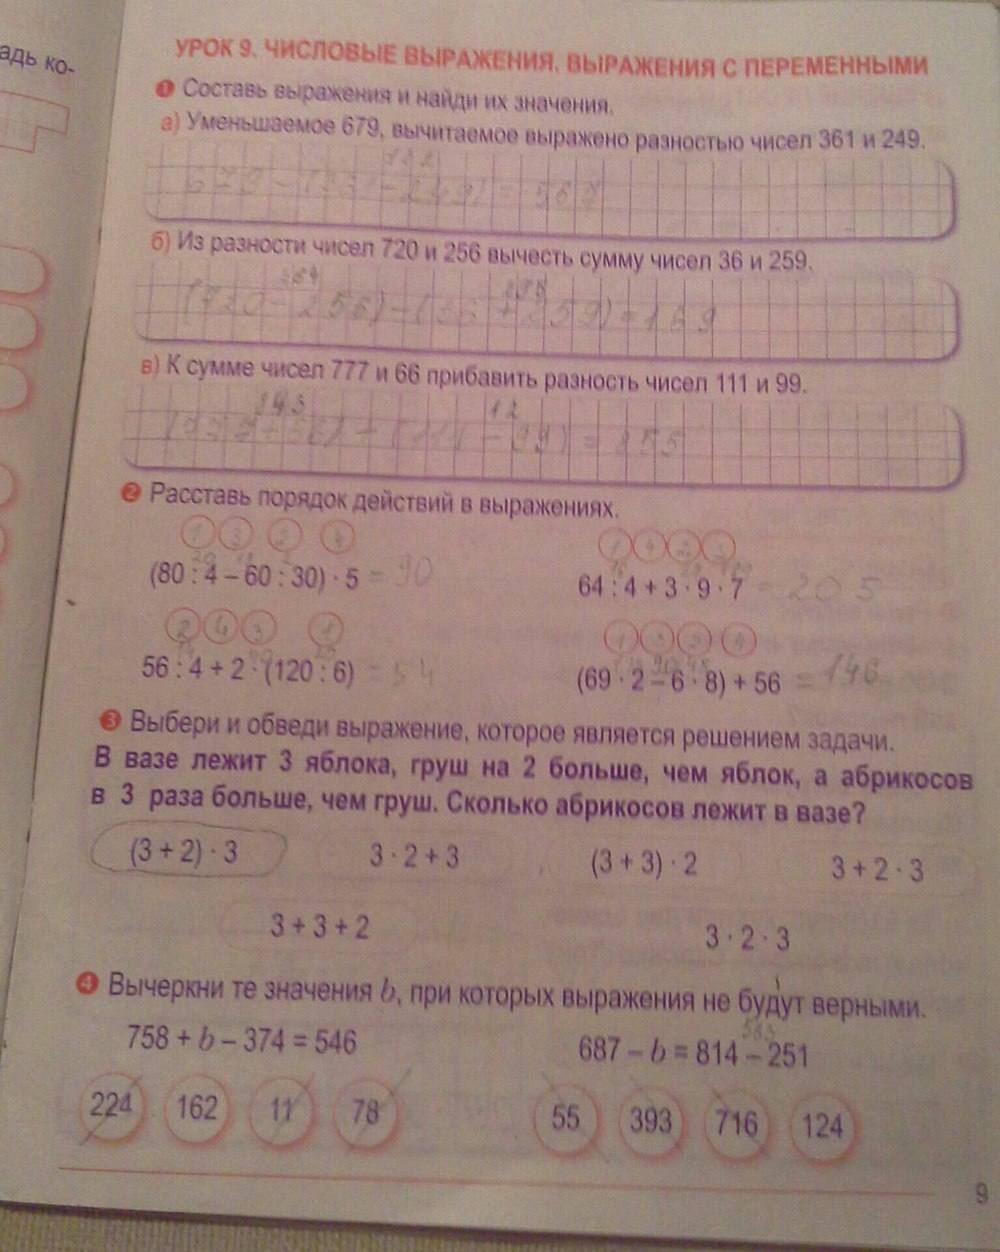 адь ко-
УРОК 9. ЧИСЛОВЫЕ ВЫРАЖЕНИЯ. ВЫРАЖЕНИЯ С ПЕРЕМЕННЫМИ
1 Составь выражения и найди их значения.
а) Уменьшаемое 679, вычитаемое выражено разностью чисел 361 и 249.
112
679 - (361 - 249) = 567
б) Из разности чисел 720 и 256 вычесть сумму чисел 36 и 259.
464 295
(720 - 256) - (36 + 259) = 169
в) К сумме чисел 777 и 66 прибавить разность чисел 111 и 99.
843 12
(777 + 66) + (111 - 99) = 855
2 Расставь порядок действий в выражениях.
1 3 2 4 1 4 2 3
(80 : 4 – 60 : 30) · 5 = 90 64 : 4 + 3 · 9 · 7 = 205
2 4 3 1 1 3 2 4
56 : 4 + 2 · (120 : 6) = 54 (69 · 2 – 6 · 8) + 56 = 146
3 Выбери и обведи выражение, которое является решением задачи.
В вазе лежит 3 яблока, груш на 2 больше, чем яблок, а абрикосов
в 3 раза больше, чем груш. Сколько абрикосов лежит в вазе?
(3 + 2) · 3 3 · 2 + 3 (3 + 3) · 2 3 + 2 · 3
3 + 3 + 2 3 · 2 · 3
4 Вычеркни те значения b, при которых выражения не будут верными.
563
758 + b – 374 = 546 687 – b = 814 – 251
224 162 11 78 55 393 716 124
9